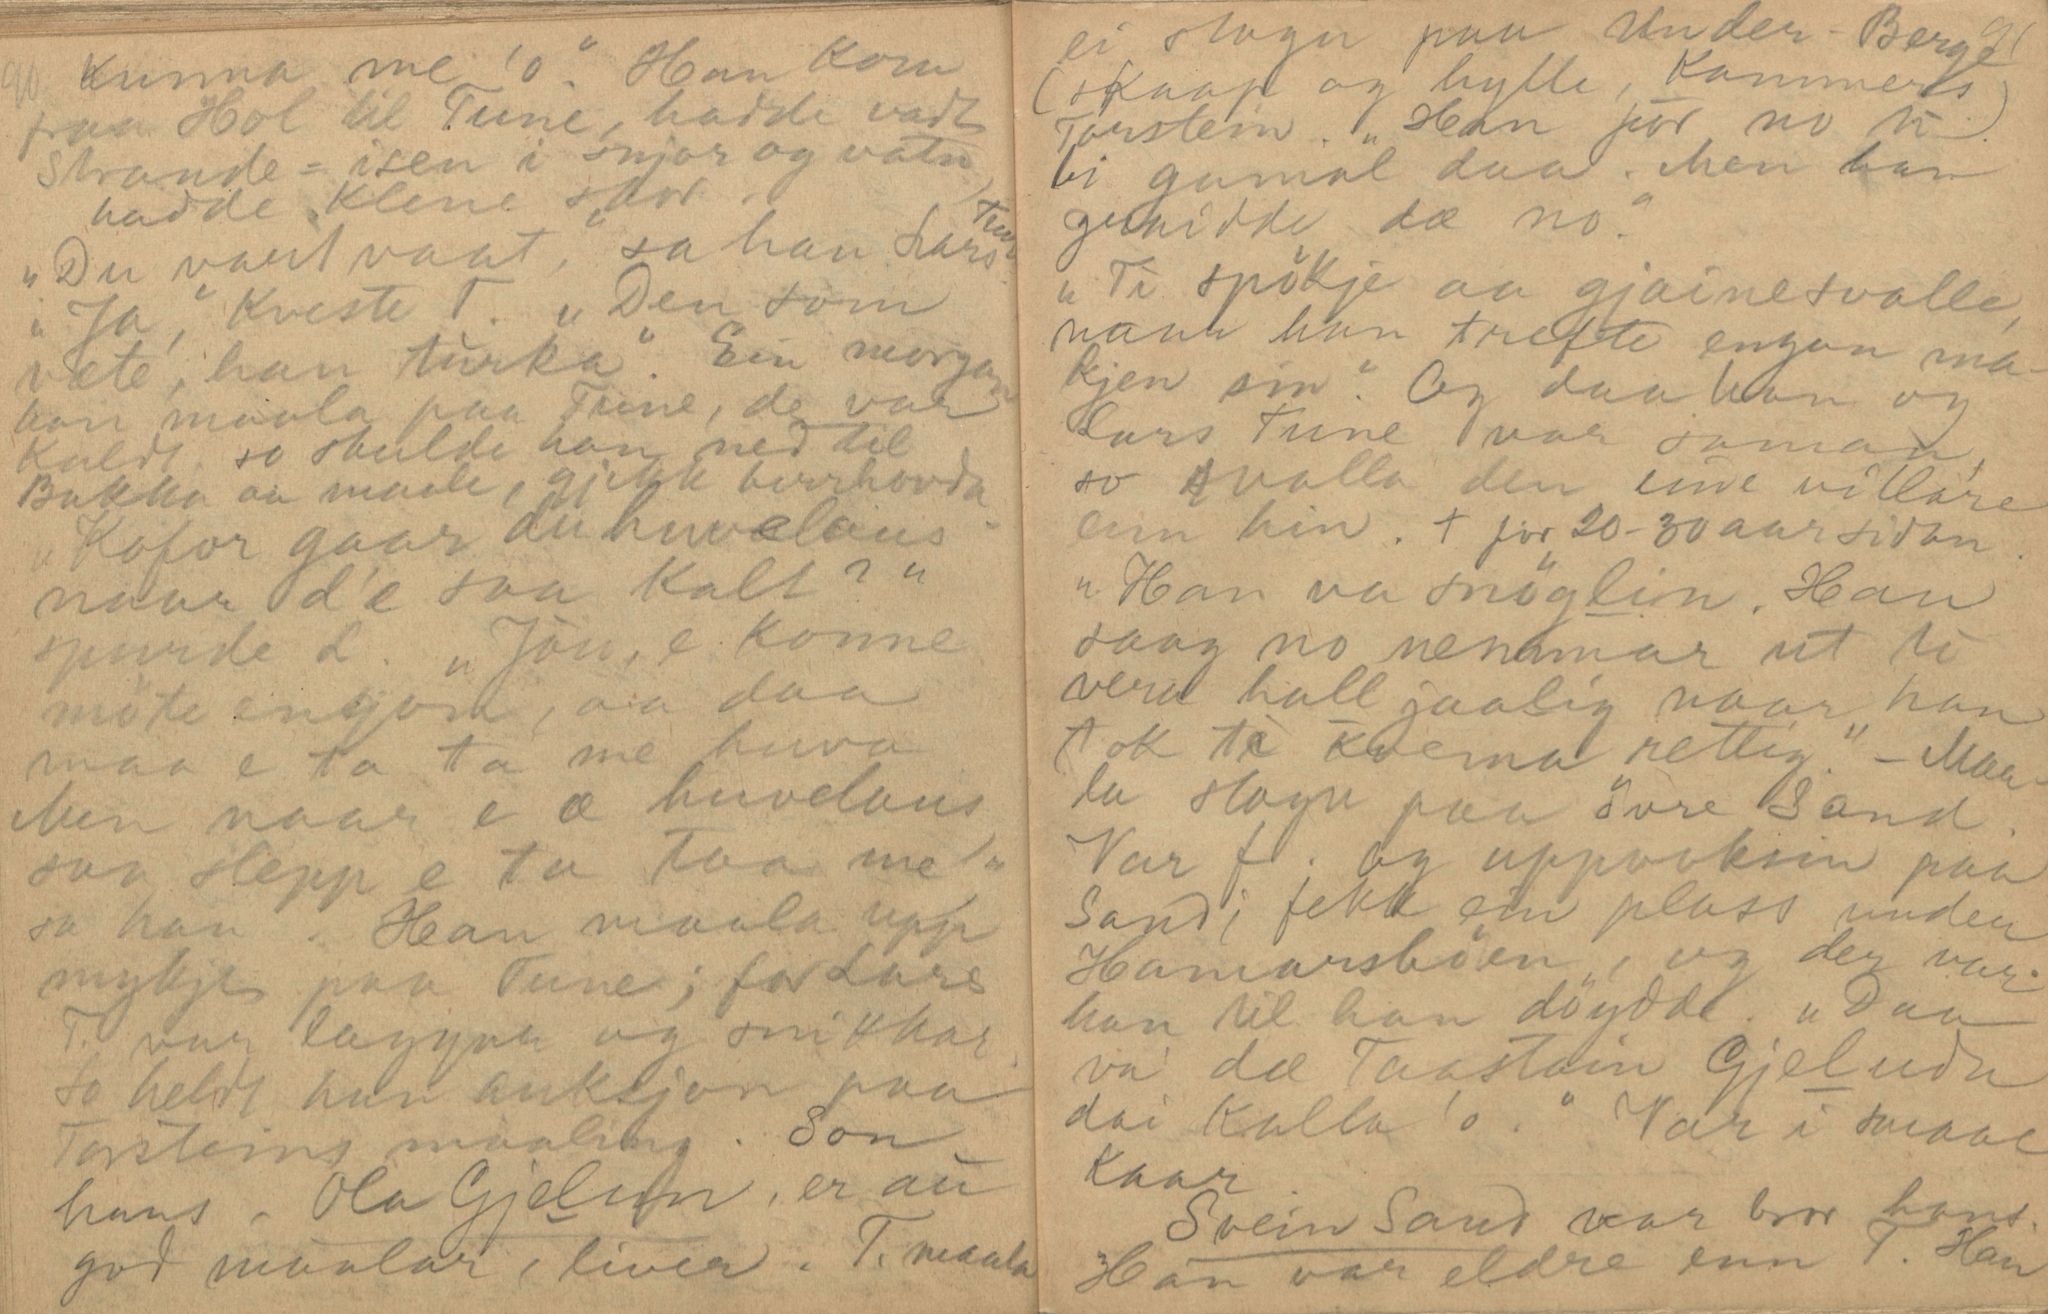 90
kunna me 'o". Han kom
fraa Hol til Tune, hadde vadt
Strande-isen i snjor og vatn
hadde klene skor.
Tune
"Du vart vaat," sa han Lars
"Ja," kveste T. "Den som
væte, han turka". Ein morgon
han maala paa Tune, de var
kaldt, so skulde han ned til
Bakka aa maale, gjekk berrhovda.
"Kofor gaar du huvelaus
naar d'e saa kalt?"
spurde L. "Jau, e konne
møte engon, aa daa
maa e ta ta me huva
Men naar e æ huvelaus
saa slepp e ta taa me"
sa han. Han maala upp
mykje paa Tune; for Lars
T. var laggar og snikkar.
So heldt han auksjon paa
Torsteins maaling. Son
hans, Ola Gjelun, er au
god maalar, liver. T. maala
91
ei stogu paa Under-Berge
(skaap og hylle, kammers)
Torstein. "Han for no ti
bi gamal daa. Men han
gnidde dæ no."
"Ti spökje aa gjainesvalle,
naar han trefte engon ma-
kjen sin". Og daa han og
Lars Tune var saman,
so svalla den eine villare
enn hin. † for 20-30 aar sidan.
"Han va snöglin. Han
saag no nemmar ut ti
vera hall jaalig naar han
tok ti kverna rettig." - Maa-
la stogu paa Övre Sand.
Var f. og uppvoksin paa
Sand; fekk ein plass under
Hamarsböen, og der var
han til han döydde. "Daa
va dæ Taastain Gjeluda
dai kalla 'o." Var i smaae
kaar.
Svein Sand var bror hans.
Han var eldre enn T. Han